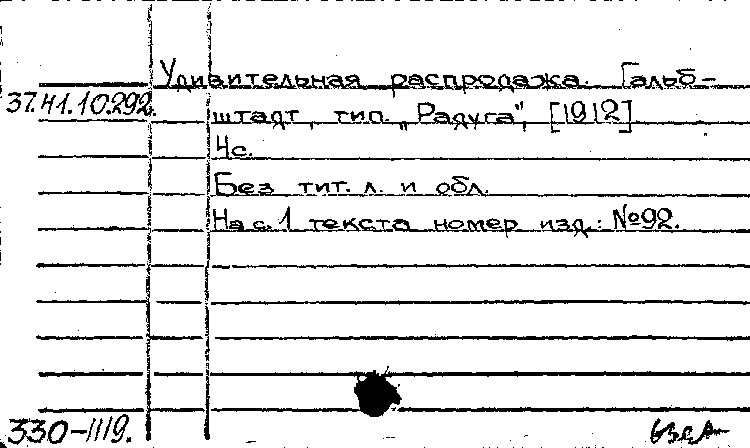 Удивительная распродажа. Гальб-
37.41.10.292. штадт, тип. „Радуга", [1912]
4с.
Без тит. л. и обл.
На с. 1 текста номер изд.: №92.
330-1119.